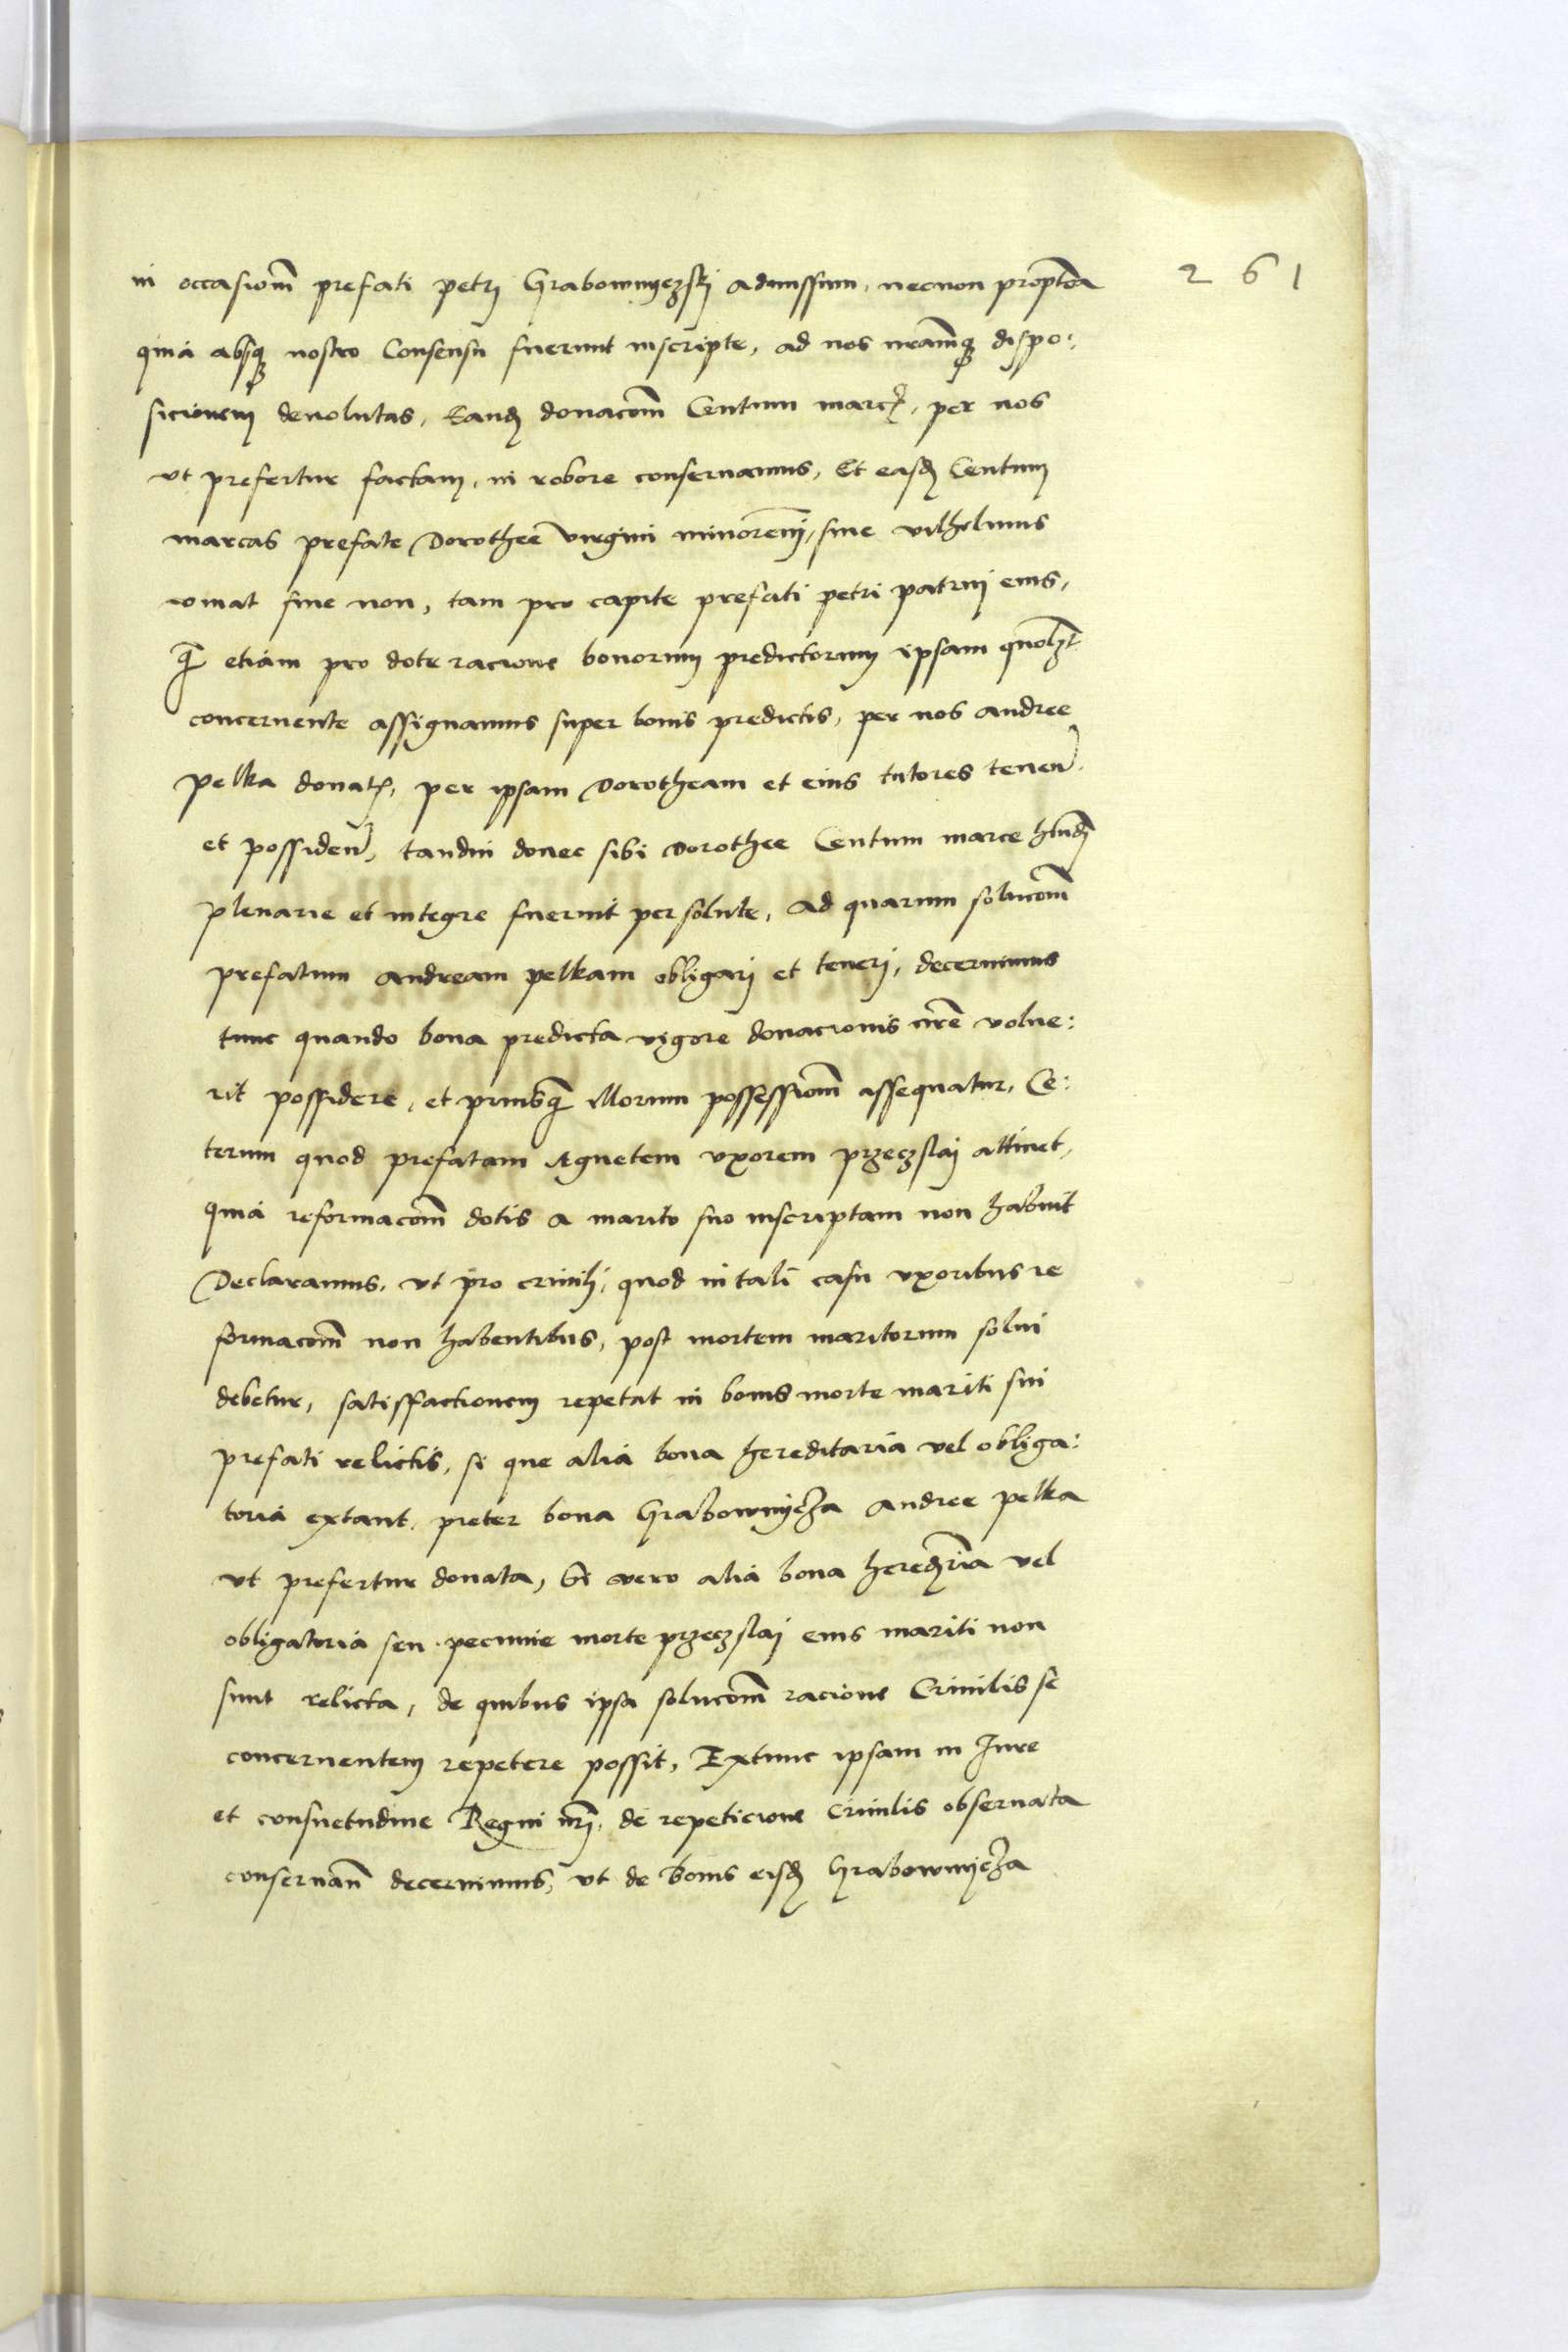 261
in occasionē prefati petrj Grabownyczskj admissum, necnon proptea
quia absqꝫ nostro Consensu fuerunt inscripte, ad nos nramqꝫ dispo:
sicionem deuolutas, Eand donacōm Centum marcꝝ, per nos
vt prefertur factam, in robore conseruamus, Et easd Centum
marcas prefate Dorothee virgini minorenj, siue vilhelmus
viuat siue non, tam pro capite prefati petri patrui eius,
q̄ etiam pro dote racione bonorum predictorum ipsam quolꝫt
concernente assignamus super bonis predictis, per nos andree
pelka donatꝭ, per ipsam Dorotheam et eius tutores tenen̄
et possiden̄, tandiu donec sibi Dorothee Centum marce hmōdi
plenarie et integre fuerint persolute, Ad quarum solucōm
prefatum andream pelkam obligarj et tenerj, decernimus
tunc quando bona predicta vigore donacionis nrē volue:
rit possidere, et priusq̄ illorum possessionē assequatur, Ce:
terum quod prefatam Agnetem vxorem przeczslaj attinet,
quia reformacōm dotis a marito suo inscriptam non habuit
Declaramus, vt pro crinilj, quod in tali casu vxoribus re
formacōm non habentibus, post mortem maritorum solui
debetur, satisfactionem repetat in bonis morte mariti sui
prefati relictis, si que alia bona hereditaria vel obliga:
toria extant, preter bona Grabownycza Andree pelka
vt prefertur donata, Si vero alia bona heredria vel
obligatoria seu pecunie morte przeczslaj eius mariti non
sunt relicta, de quibus ipsa solucōm racione Crinilis se
concernentem repetere possit, Extunc ipsam in Jure
et consuetudine Regni nrj, de repeticione Crinilis obseruata
conseruan̄ decernimus, vt de bonis eisd Grabownycza